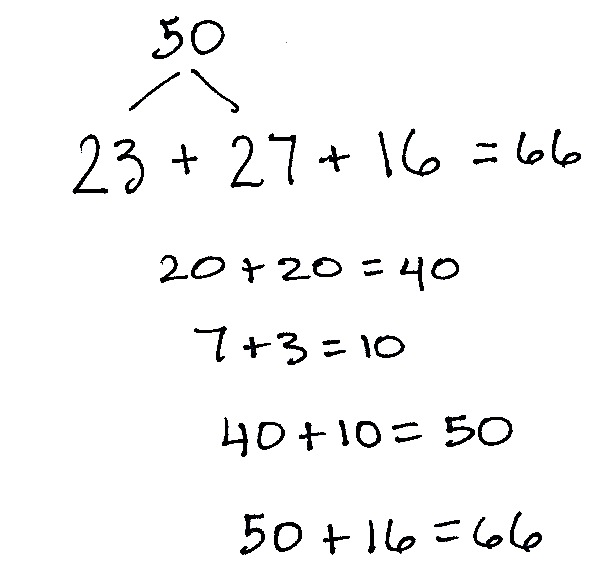 50
23 + 27 + 16 = 66
20 + 20 = 40
7 + 3 = 10
40 + 10 = 50
50 + 16 = 66